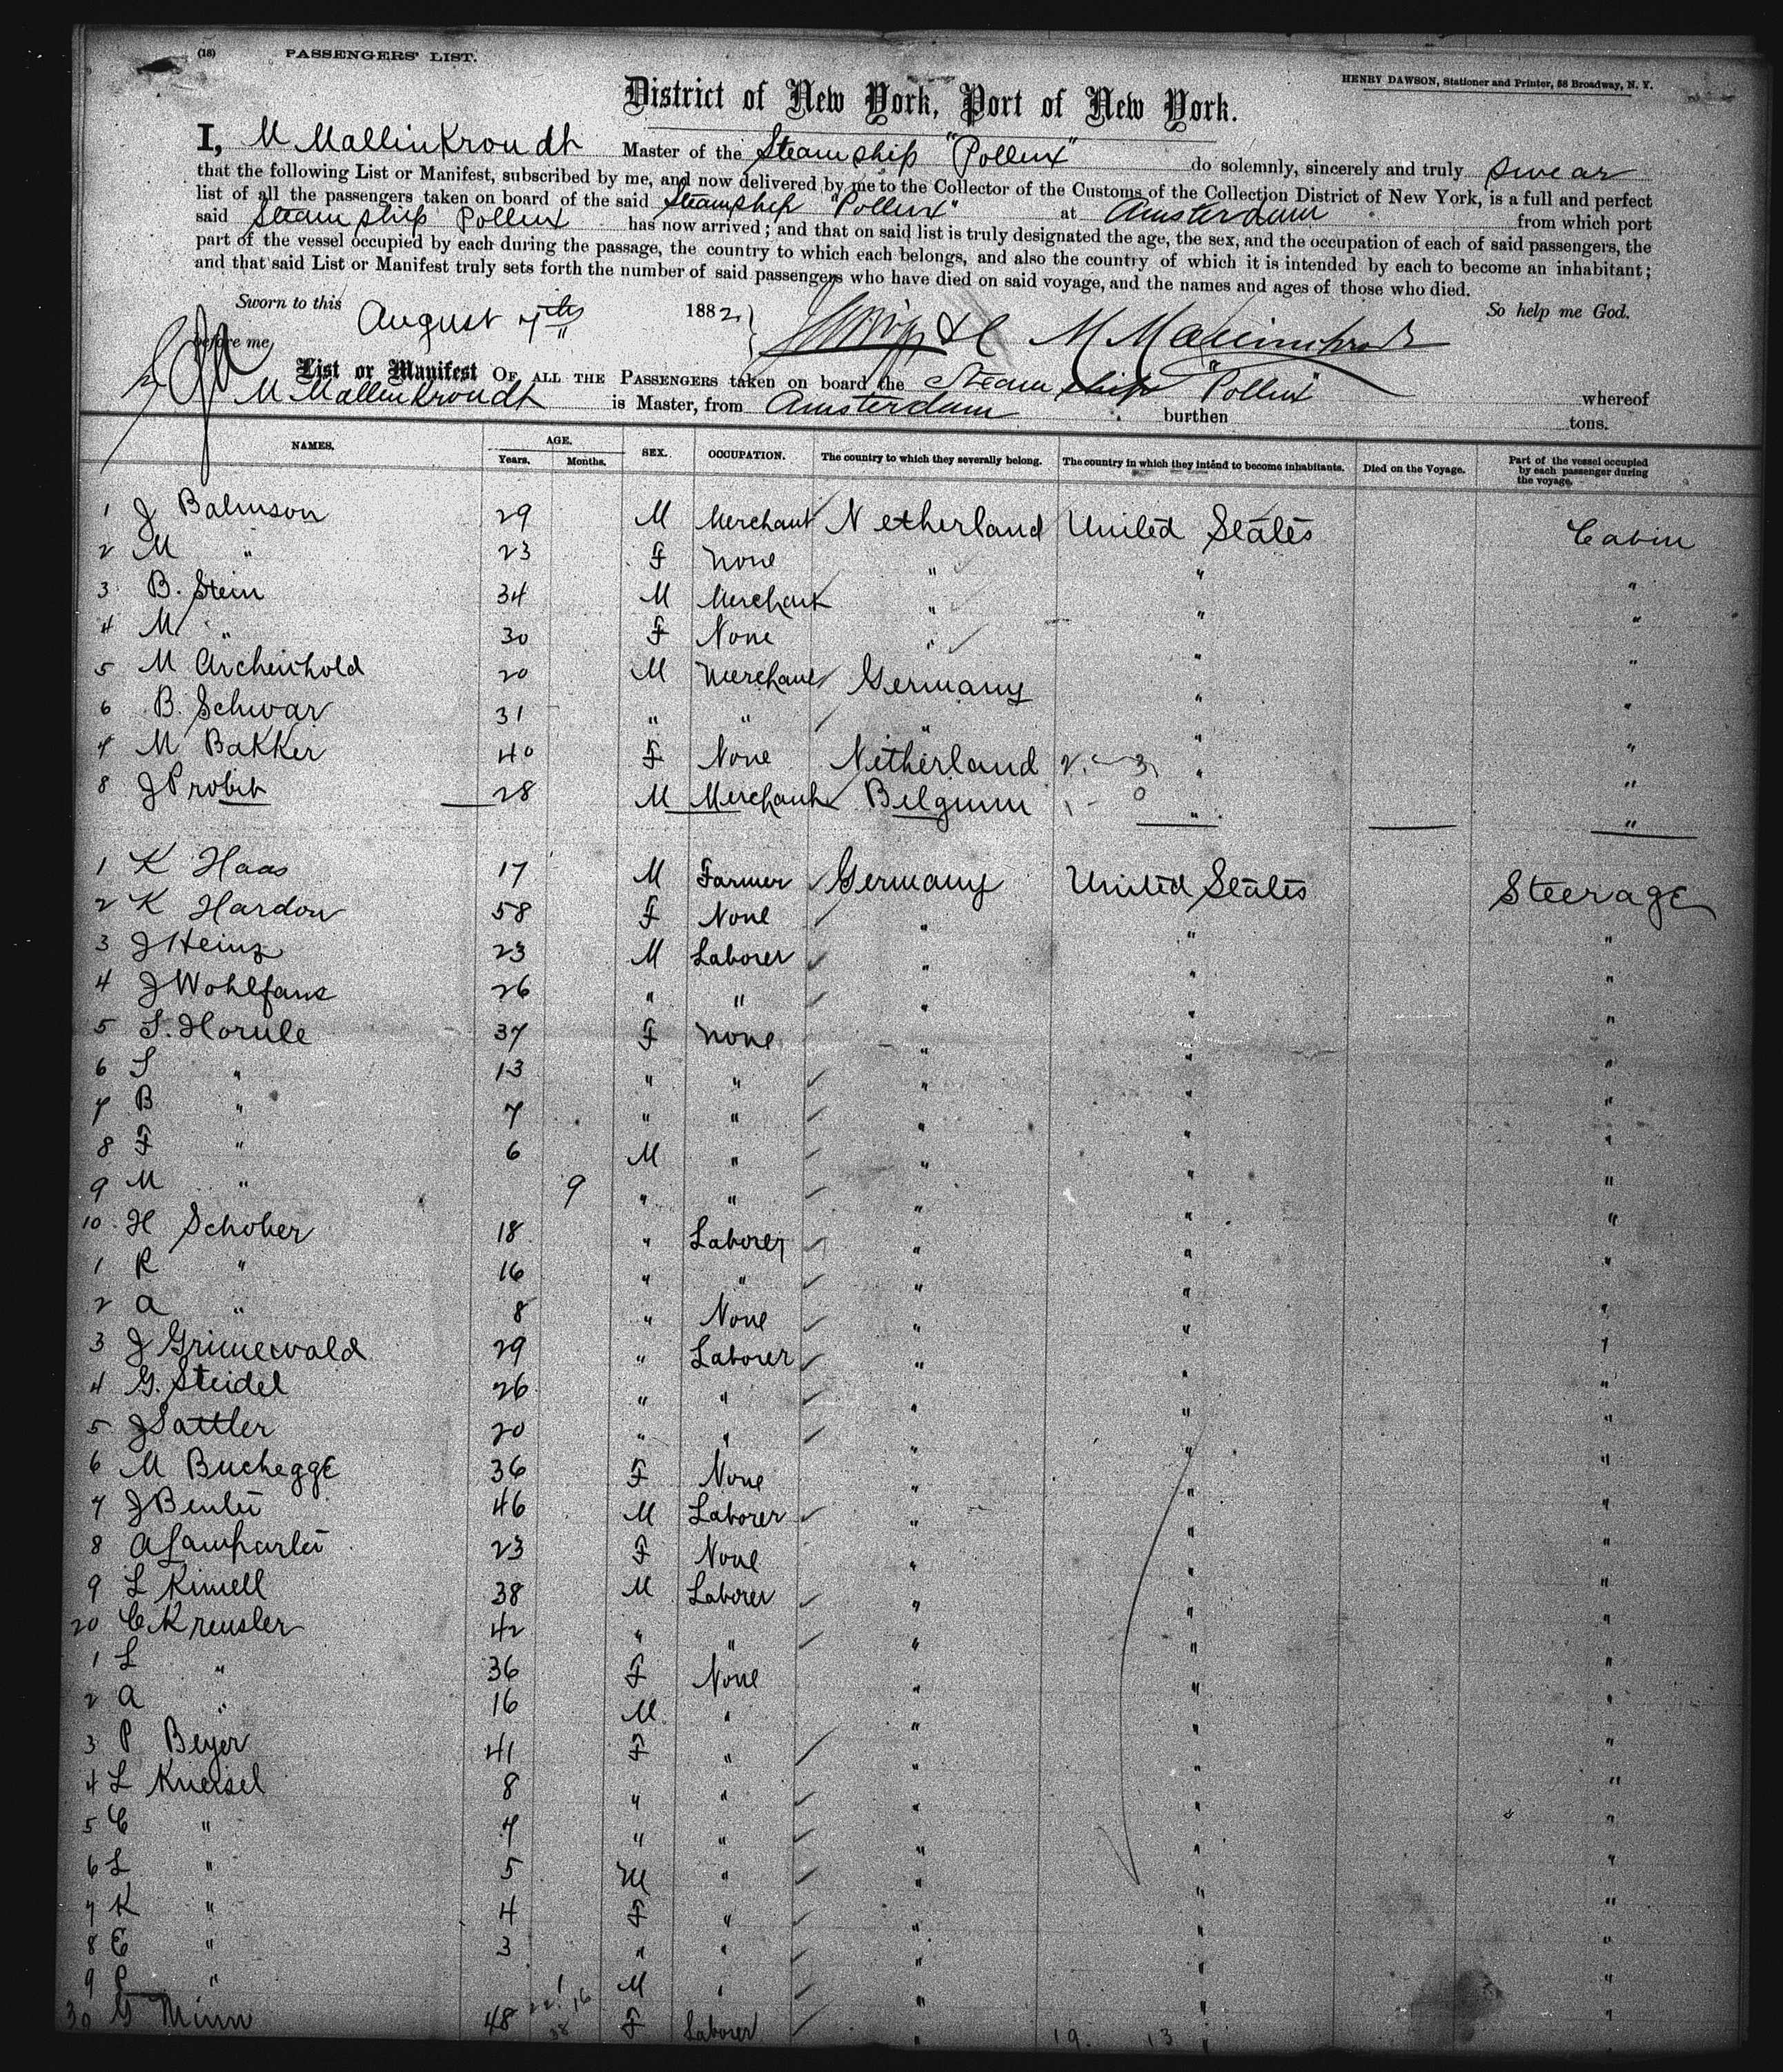 (18) PASSENGERS' LIST.
HENRY DAWSON, Stationer and Printer, 58 Broadway, N. Y.
District of New York, Port of New York.
I, M Mallinkroudt Master of the Steamship "Pollux" do solemnly, sincerely and truly swear
that the following List or Manifest, subscribed by me, and now delivered by me to the Collector of the Customs of the Collection District of New York, is a full and perfect
list of all the passengers taken on board of the said Steamship "Pollux" at Amsterdam from which port
said Steamship Pollux has now arrived; and that on said list is truly designated the age, the sex, and the occupation of each of said passengers, the
part of the vessel occupied by each during the passage, the country to which each belongs, and also the country of which it is intended by each to become an inhabitant;
and that said List or Manifest truly sets forth the number of said passengers who have died on said voyage, and the names and ages of those who died.
Sworn to this August 7th 1882 So help me God.
before me,
List or Manifest OF ALL THE PASSENGERS taken on board the Steamship "Pollux" whereof
M Mallinkroudt is Master, from Amsterdam burthen tons.
NAMES. AGE. Years. Months. SEX. OCCUPATION. The country to which they severally belong. The country in which they intend to become inhabitants. Died on the Voyage. Part of the vessel occupied by each passenger during the voyage.
1 J Balinson 29 M Merchant Netherland United States Cabin
2 M " 23 F None " " "
3 B. Stein 34 M Merchant " " "
4 M " 30 F None " " "
5 M Archenhold 20 M Merchant Germany " "
6 B. Schwar 31 " " " " "
7 M Bakker 40 F None Netherland " "
8 J Probst 28 M Merchant Belgium " "
1 K Haas 17 M Farmer Germany United States Steerage
2 K Hardon 58 F None " " "
3 J Heinz 23 M Laborer " " "
4 J Wohlfans 26 " " " " "
5 S. Horule 37 F None " " "
6 S " 13 " " " " "
7 B " 7 " " " " "
8 F " 6 M " " " "
9 M " 9 " " " " "
10 H Schober 18 " Laborer " " "
1 R " 16 " " " " "
2 A " 8 " None " " "
3 J Grunewald 29 " Laborer " " "
4 G. Steidel 26 " " " " "
5 J Sattler 20 " " " " "
6 M Buchegge 36 F None " " "
7 J Beuler 46 M Laborer " " "
8 A Lamparter 23 F None " " "
9 L Kimell 38 M Laborer " " "
20 C Kreusler 42 " " " " "
1 L " 36 F None " " "
2 A " 16 M " " " "
3 P Beyer 41 F " " " "
4 L Kneisel 8 " " " " "
5 C " 7 " " " " "
6 L " 5 M " " " "
7 K " 4 F " " " "
8 E " 3 " " " " "
9 P " 1 M " " " "
30 G Minn 48 F Laborer " " "